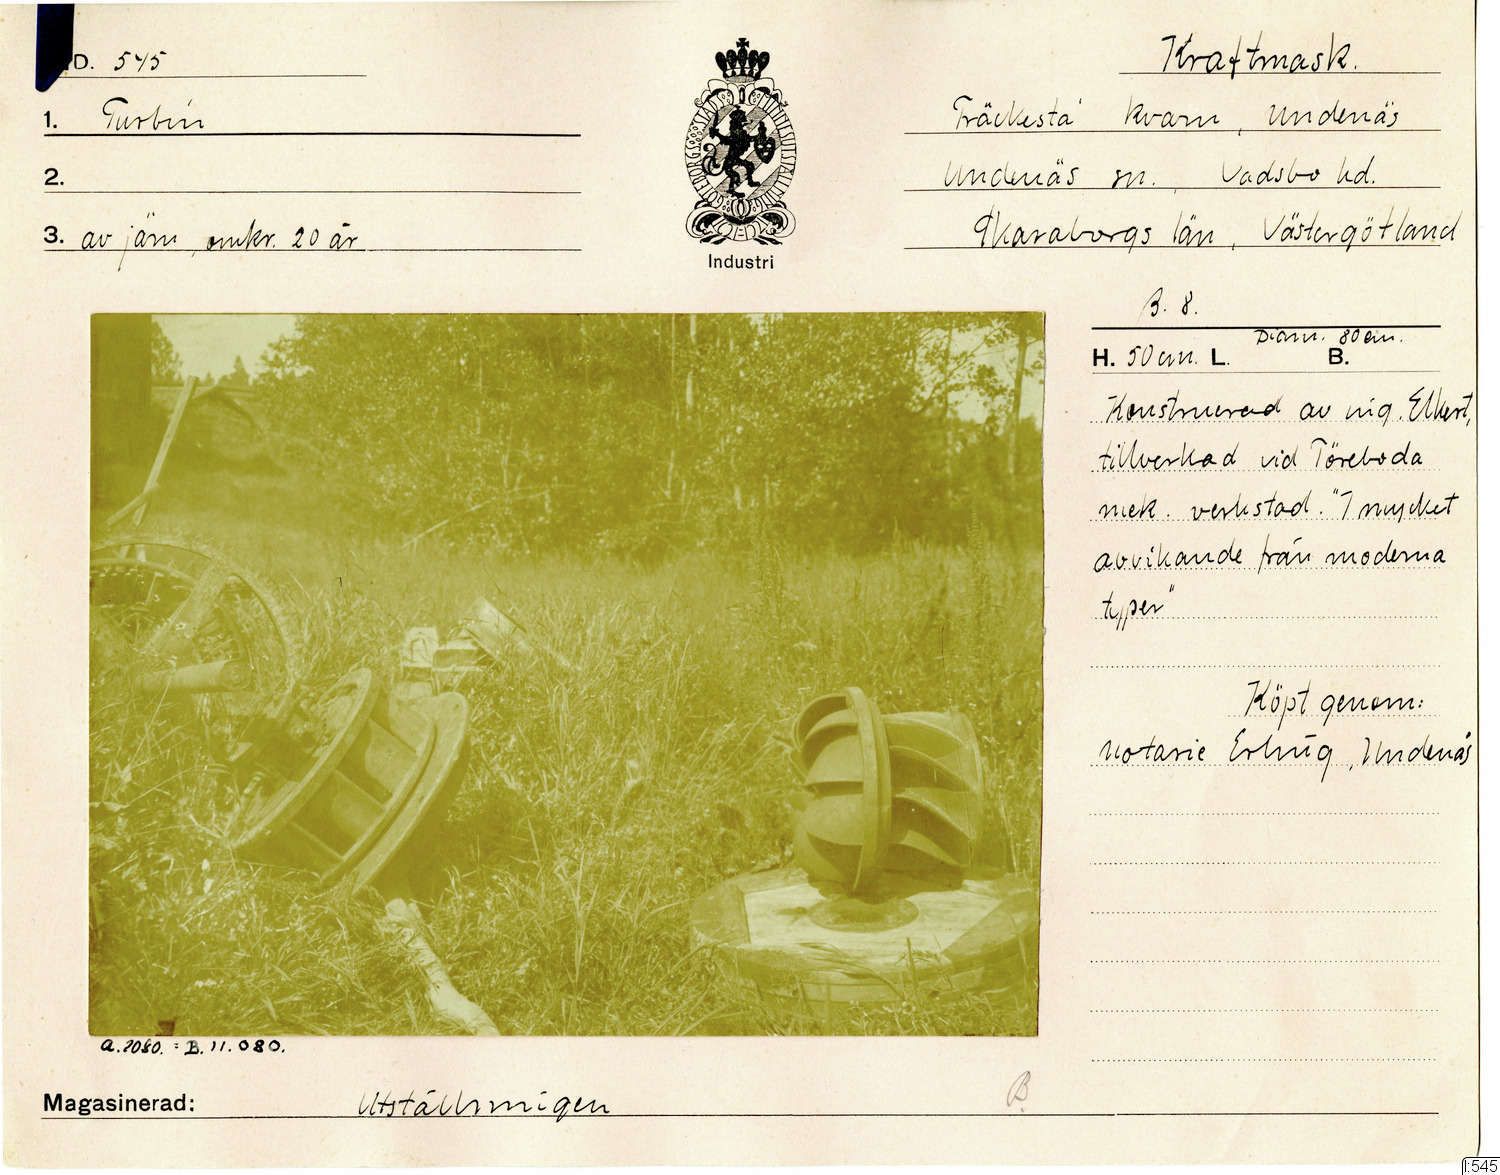 D. 545
1. Turbin
2.
3. av järn, omkr. 20 år
GÖTEBORGS STADS MINNESUTSTÄLLNING
Industri
Kraftmask.
Träckesta kvarn, Undenäs
Undenäs sn., Vadsbo hd.
Skaraborgs län, Västergötland
B. 8.
Diam. 80 cm.
H. 50 cm. L. B.
Konstruerad av ing. Elkert,
tillverkad vid Töreboda
mek. verkstad. "I mycket
avvikande från moderna
typer"
Köpt genom:
notarie Erling, Undenäs
a.2080. = B.11.080.
Magasinerad: Utställningen
B.
I:545